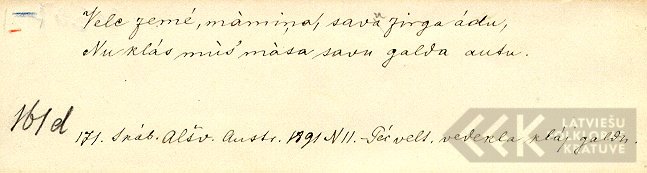 Velc zemé, màmiņa, sava zirga ádu,
Nu klás mùs' màsa savu galda autu.
161d
171. Snáb. Alšv. Austr. 1891 N 11. Péc velt. vedekla kláj galdu.
LATVIEŠU
FOLKLORAS
KRĀTUVE